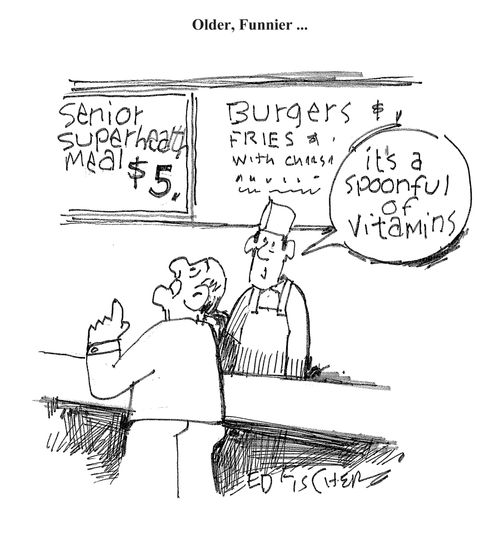 Older, Funnier ...
Senior
superhealth
Meal $5.
Burgers $
FRIES &
with cheese
it's a
spoonful
of
vitamins
ED FISCHER